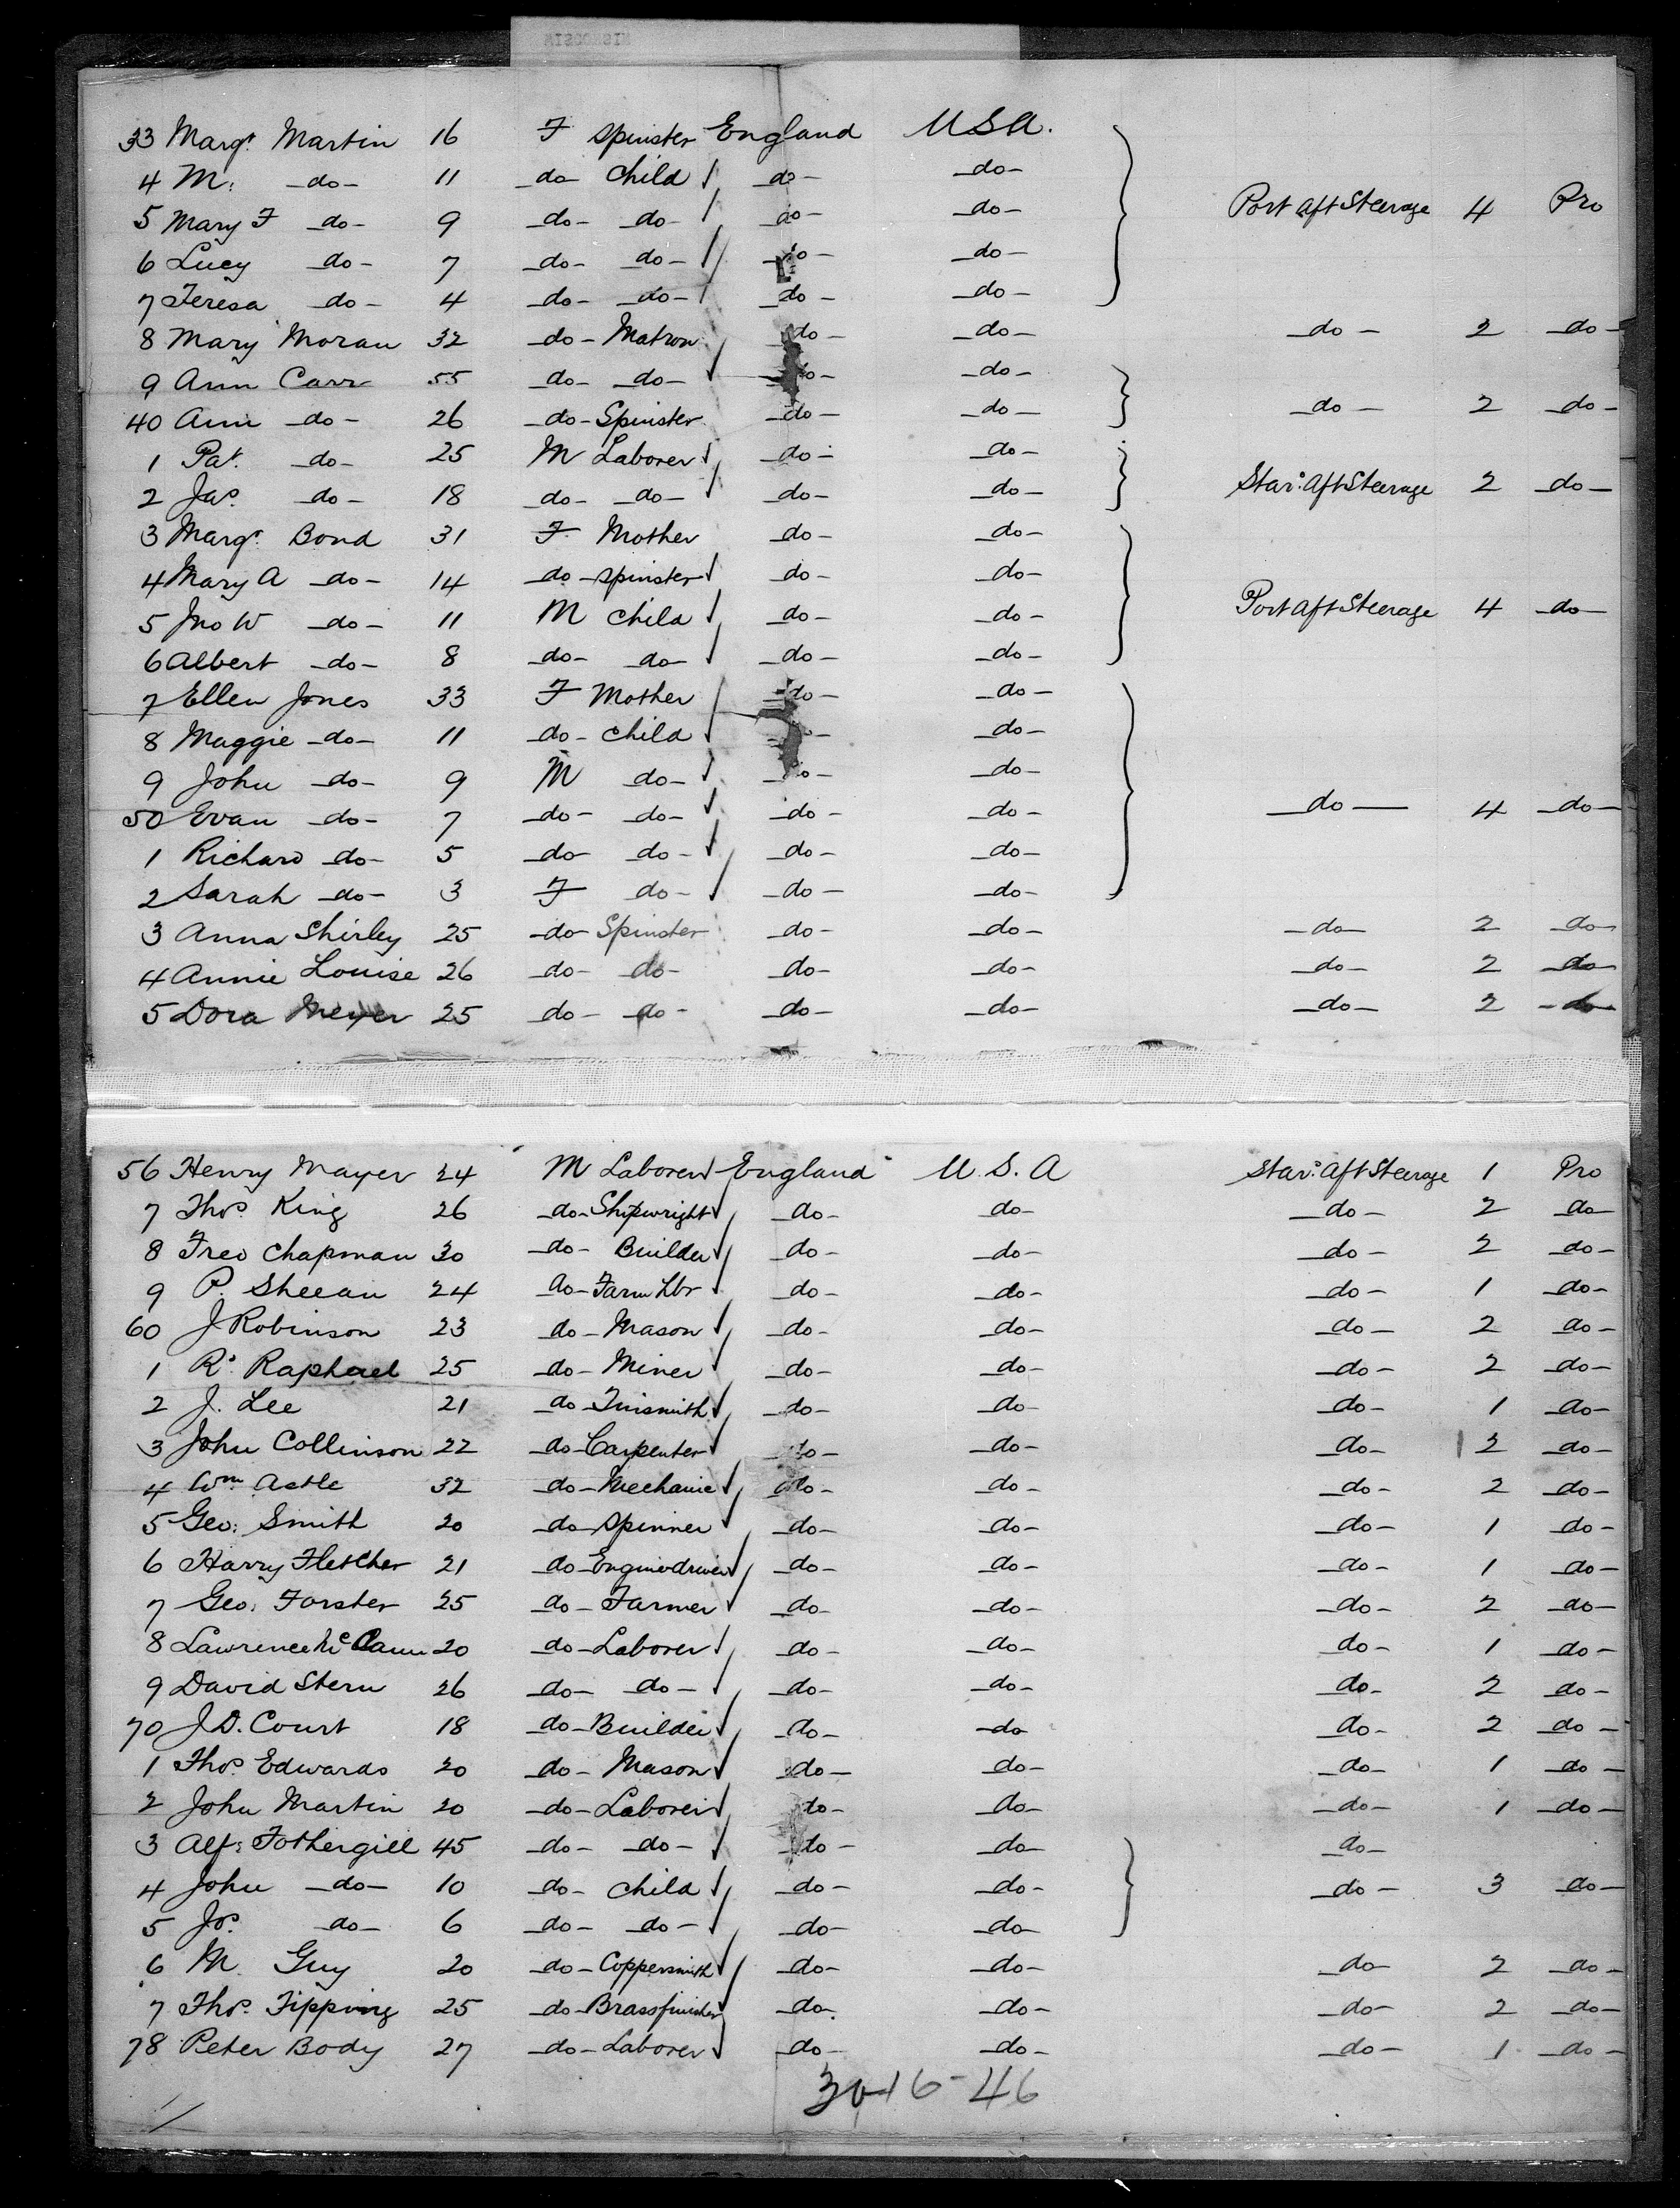 33 Margt. Martin 16 F spinster England USA.
4 M: -do- 11 -do- child -do- -do-
5 Mary F -do- 9 -do- -do- do- -do- Port aft Steerage 4 Pro
6 Lucy -do- 7 -do- -do- do- -do-
7 Teresa -do- 4 -do- -do- -do- -do-
8 Mary Moran 32 -do- Matron do- -do- -do- 2 -do-
9 Ann Carr 55 -do- -do- do- -do-
40 Ann -do- 26 -do- Spinster -do- -do- -do- 2 -do-
1 Pat. -do- 25 M Laborer -do- -do-
2 Jas. -do- 18 -do- -do- -do- -do- Star: aft Steerage 2 -do-
3 Margt. Bond 31 F Mother -do- -do-
4 Mary A -do- 14 -do- spinster -do- -do-
5 Jno W -do- 11 M child -do- -do- Port aft Steerage 4 -do-
6 Albert -do- 8 -do- -do- -do- -do-
7 Ellen Jones 33 F Mother -do- -do-
8 Maggie -do- 11 -do- child - -do-
9 John -do- 9 M do- do- -do-
50 Evan -do- 7 -do- -do- -do- -do- -do- 4 -do-
1 Richard -do- 5 -do- do- -do- -do-
2 Sarah -do- 3 F do- -do- -do-
3 Anna Shirley 25 -do- Spinster -do- -do- -do- 2 do-
4 Annie Louise 26 -do- do- -do- -do- -do- 2 -do-
5 Dora Meyer 25 -do- -do- -do- -do- -do- 2 -do-
56 Henry Mayer 24 M Laborer England U.S.A Star: aft Steerage 1 Pro
7 Thos. King 26 -do- Shipwright -do- -do- -do- 2 do-
8 Fred Chapman 30 -do- Builder -do- -do- -do- 2 do-
9 P. Sheean 24 do- Farm Lbr -do- -do- -do- 1 -do-
60 J Robinson 23 -do- Mason -do- -do- -do- 2 do-
1 Rd. Raphael 25 -do- Miner -do- -do- -do- 2 -do-
2 J. Lee 21 do Tinsmith -do- -do- -do- 1 -do-
3 John Collinson 22 -do- Carpenter do- -do- -do- 2 -do-
4 Wm. Astle 32 -do- Mechanic do- -do- -do- 2 -do-
5 Geo: Smith 20 -do- spinner -do- -do- -do- 1 do-
6 Harry Fletcher 21 -do- Enginedriver -do- -do- -do- 1 -do-
7 Geo: Forster 25 do- Farmer -do- -do- -do- 2 do-
8 Lawrence McCann 20 -do- Laborer -do- -do- do- 1 -do-
9 David Stern 26 -do- do- -do- -do- do- 2 -do-
70 J.D. Court 18 -do- Builder -do- -do do- 2 do-
1 Thos. Edwards 20 -do- Mason do- -do- do- 1 do-
2 John Martin 20 -do- Laborer do- do- -do- 1 -do-
3 Alf: Fothergill 45 -do- -do- do- -do- do-
4 John -do- 10 -do- child -do- -do- -do- 3 do-
5 Jos. -do- 6 -do- -do- -do- -do-
6 M. Guy 20 -do- Coppersmith -do- -do- do- 2 do-
7 Thos. Tipping 25 -do- Brassfinisher do- -do- -do- 2 do-
78 Peter Body 27 -do- Laborer -do- -do- -do- 1 do-
30-16-46